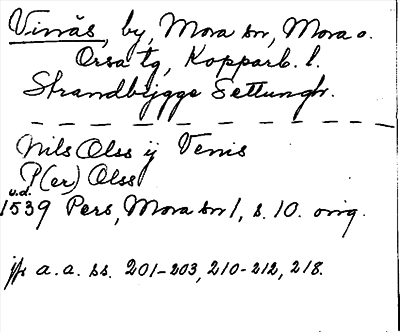 Vinäs, by, Mora sn, Mora o.
Orsa tg, Kopparb. l.
Strandbygge Settungh.
Nils Olss ij Venis
P(er) Olss
u.d.
1539 Pers, Mora sn 1, s. 10. orig.
jfr a.a. ss. 201-203, 210-212, 218.